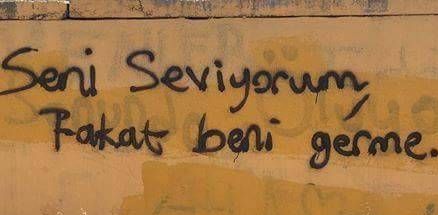 Seni Seviyorum,
Fakat beni germe.